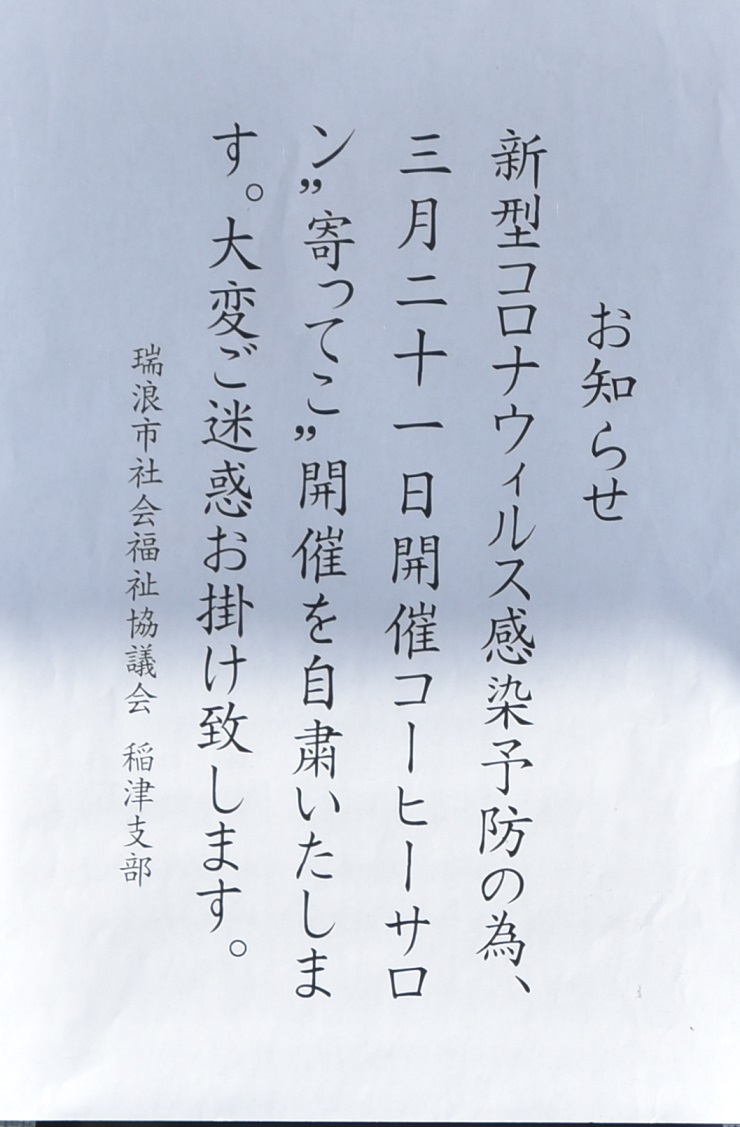 お知らせ
新型コロナウィルス感染予防の為、
三月二十一日開催コーヒーサロ
ン”寄ってこ”開催を自粛いたしま
す。大変ご迷惑お掛け致します。
瑞浪市社会福祉協議会　稲津支部